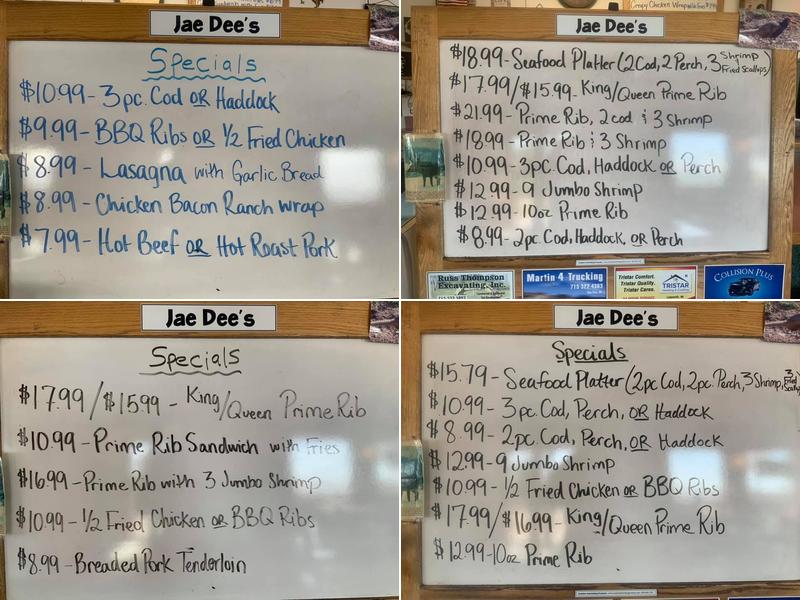 Jae Dee's
Specials
$10.99 - 3pc. Cod OR Haddock
$9.99 - BBQ Ribs OR 1/2 Fried Chicken
$8.99 - Lasagna with Garlic Bread
$8.99 - Chicken Bacon Ranch Wrap
$7.99 - Hot Beef OR Hot Roast Pork
Jae Dee's
$18.99 - Seafood Platter (2 Cod, 2 Perch, 3 Shrimp, 3 Fried Scallops)
$17.99/$15.99 - King/Queen Prime Rib
$21.99 - Prime Rib, 2 cod & 3 Shrimp
$18.99 - Prime Rib & 3 Shrimp
$10.99 - 3pc. Cod, Haddock OR Perch
$12.99 - 9 Jumbo Shrimp
$12.99 - 10oz Prime Rib
$8.99 - 2pc. Cod, Haddock, OR Perch
Russ Thompson
Excavating, Inc.
Martin 4 Trucking
715 322 4383
Tristar Comfort.
Tristar Quality.
Tristar Cares.
TRISTAR
COLLISION PLUS
Jae Dee's
Specials
$17.99/$15.99 - King/Queen Prime Rib
$10.99 - Prime Rib Sandwich with Fries
$16.99 - Prime Rib with 3 Jumbo Shrimp
$10.99 - 1/2 Fried Chicken OR BBQ Ribs
$8.99 - Breaded Pork Tenderloin
Jae Dee's
Specials
$15.79 - Seafood Platter (2pc Cod, 2pc. Perch, 3 Shrimp, 3 Fried Scallops
$10.99 - 3pc Cod, Perch, OR Haddock
$8.99 - 2pc. Cod, Perch, OR Haddock
$12.99 - 9 Jumbo Shrimp
$10.99 - 1/2 Fried Chicken OR BBQ Ribs
$17.99/$16.99 - King/Queen Prime Rib
$12.99 - 10oz Prime Rib